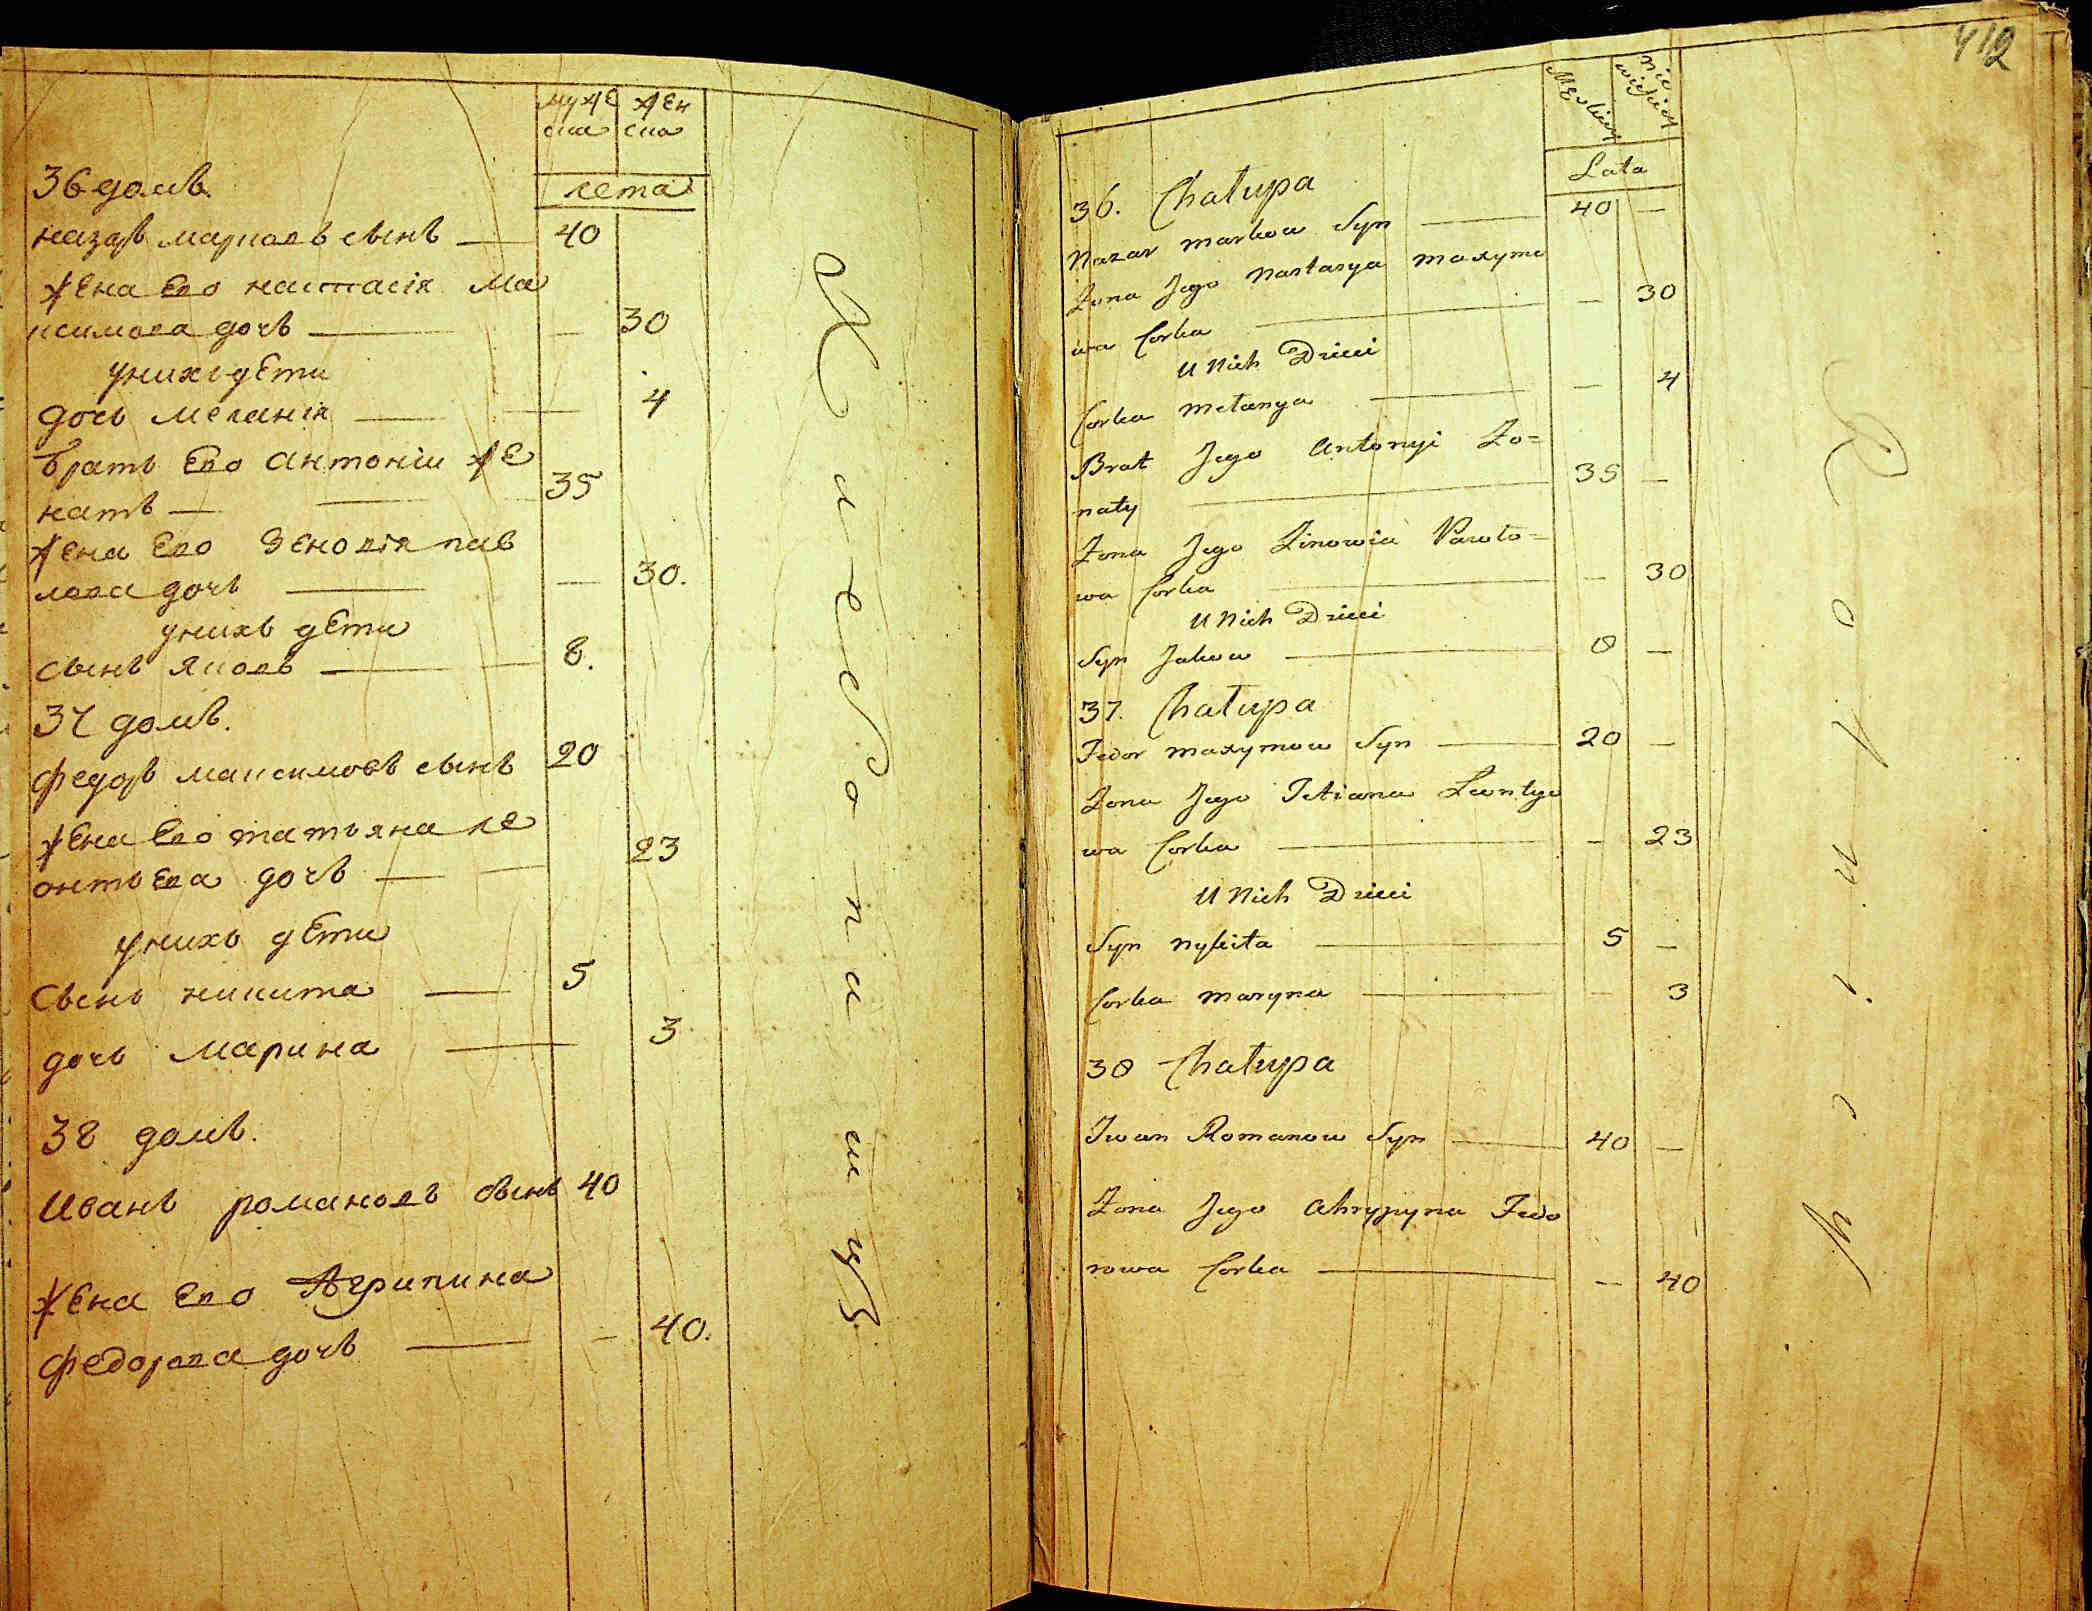 муже жен
ска ска
лета
36 домъ.
назаръ марковъ сынъ — 40
жена Его настасія ма
ксимова дочь — — 30
унихъ дети
дочь меланія — — 4
братъ Его антоніи же
натъ — — 35
жена Его Зеновія пав
лова дочь — — 30.
унихъ дети
сынъ яковъ — — 8.
37 домъ.
федоръ максимовъ сынъ 20
жена Его татьяна ле
онтьева дочь — — 23
унихъ дети
сынъ никита — 5
дочь марина — 3
38 домъ.
Иванъ романовъ сынъ 40
жена Его Агрипина
федорова дочь — — 40.
хлебопашцъ
412
Męskiey
Niewieściey
Lata
36. Chałupa
Nazar Markow Syn — 40 —
Zona Jego Nastasya Maxymo
wa Corka — — 30
U Nich Dzieci
Corka Mełanya — — 4
Brat Jego Antonyi Zo=
naty — 35 —
Zona Jego Zinowia Pawło=
wa Corka — — 30
U Nich Dzieci
Syn Jakow — 8 —
37. Chałupa
Fedor Maxymow Syn — 20 —
Zona Jego Tetiana Leontye
wa Corka — — 23
U Nich Dzieci
Syn Nykita — 5 —
Corka Maryna — — 3
38 Chałupa
Iwan Romanow Syn — 40 —
Zona Jego Ahrypyna Fedo
rowa Corka — — 40
Rolnicy